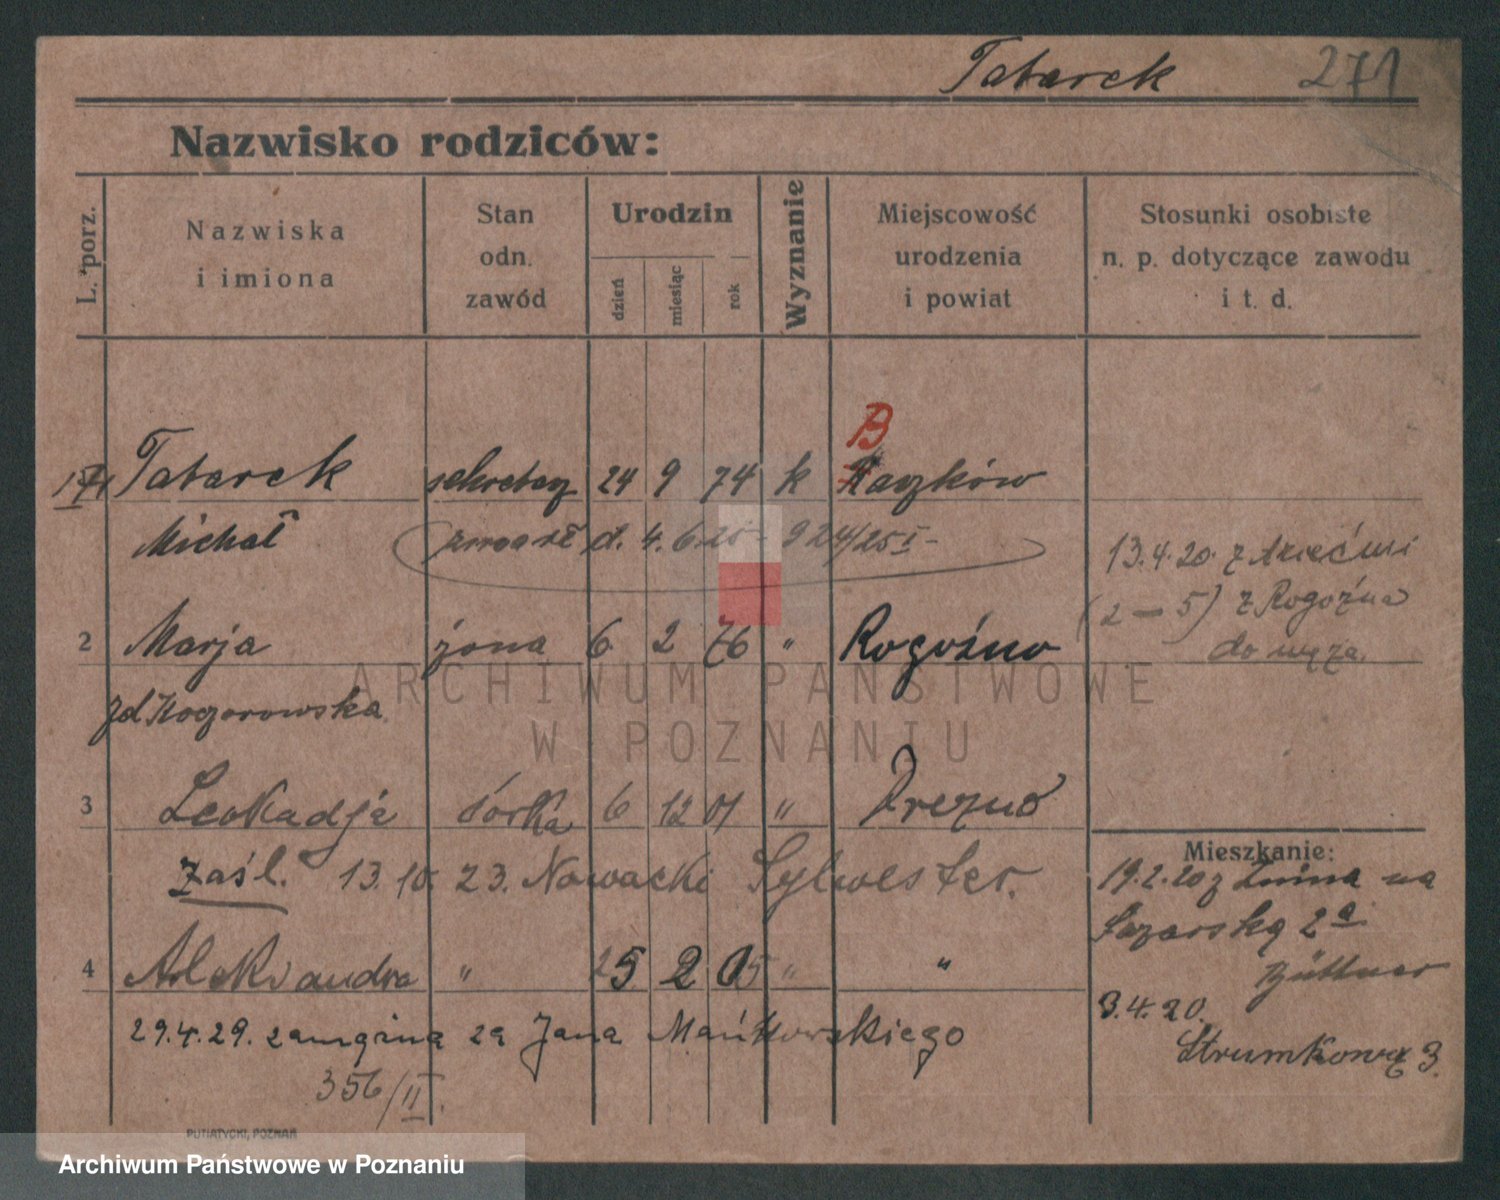 Tatarek 271
Nazwisko rodziców:
L. porz.
Nazwiska i imiona
Stan odn. zawód
Urodzin
dzień
miesiąc
rok
Wyznanie
Miejscowość urodzenia i powiat
Stosunki osobiste n. p. dotyczące zawodu i t. d.
B
Tatarek sekretarz 24 9 74 k Raczków
Michał zmarł d. 4. 6. 25 - 924/25 I -
13.4.20. z dziećmi
(2 — 5) z Rogoźna
do męża.
2 Marja żona 6 2 76 " Rogoźno
zd Kogorowska
3 Leokadja córka 6 12 01 " Drezno
zaśl. 13. 10. 23. Nowacki Sylwester.
Mieszkanie:
19.2.20 z Żnina na
Łazarską 2a
Büttner
4 Aleksandra " 25 2 05 " "
3.4.20.
Strumkową 3.
29.4.29. zamężna za Jana Mańkowskiego
356/II.
PUTIATYCKI, POZNAŃ
ARCHIWUM PAŃSTWOWE
W POZNANIU
Archiwum Państwowe w Poznaniu